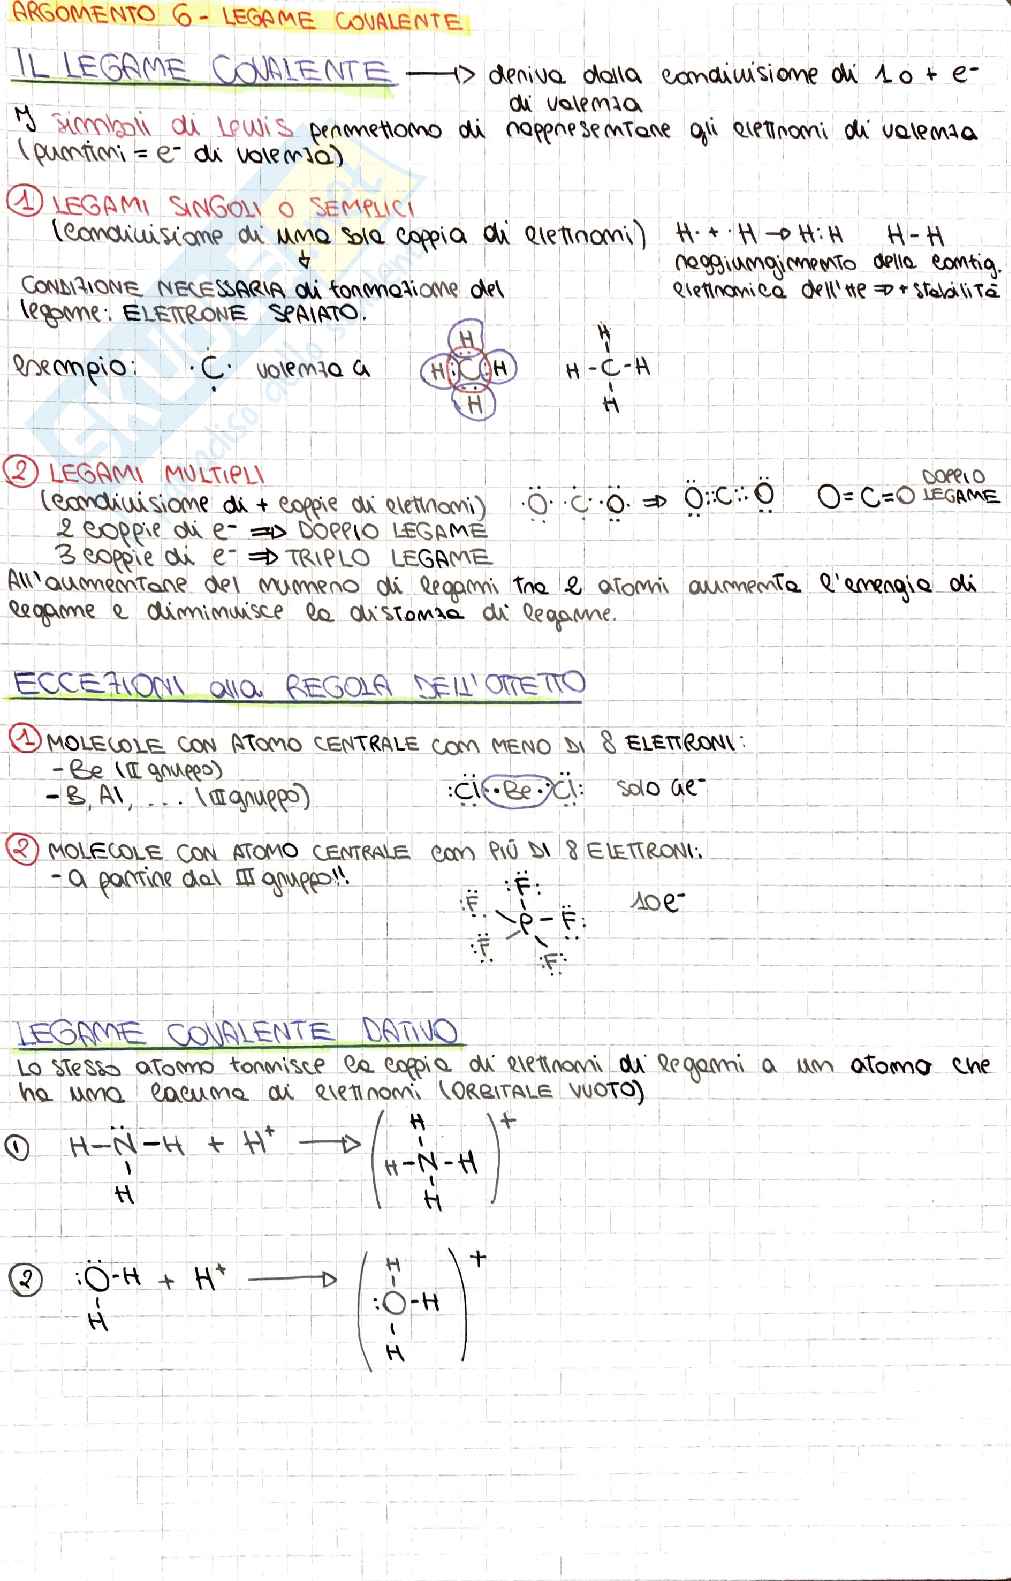 ARGOMENTO 6 - LEGAME COVALENTE
IL LEGAME COVALENTE → deriva dalla condivisione di 1 o + e-
di valenza
I simboli di Lewis permettono di rappresentare gli elettroni di valenza
(puntini = e- di valenza)
① LEGAMI SINGOLI O SEMPLICI
(condivisione di una sola coppia di elettroni) H· + ·H → H:H H-H
raggiungimento della config.
CONDIZIONE NECESSARIA di formazione del elettronica dell'He ⇒ + stabilità
legame: ELETTRONE SPAIATO.
esempio: ·C· valenza 4 H H C H H H H-C-H H
② LEGAMI MULTIPLI
(condivisione di + coppie di elettroni) O C O ⇒ O::C::O O=C=O DOPPIO LEGAME
2 coppie di e- ⇒ DOPPIO LEGAME
3 coppie di e- ⇒ TRIPLO LEGAME
All'aumentare del numero di legami tra 2 atomi aumenta l'energia di
legame e diminuisce la distanza di legame.
ECCEZIONI alla REGOLA DELL'OTTETTO
① MOLECOLE CON ATOMO CENTRALE con MENO DI 8 ELETTRONI:
- Be (II gruppo)
- B, Al, ... (III gruppo) :Cl··Be··Cl: solo 4e-
② MOLECOLE CON ATOMO CENTRALE con PIÙ DI 8 ELETTRONI:
- a partire dal III gruppo!!
F F P - F F F 10e-
LEGAME COVALENTE DATIVO
Lo stesso atomo fornisce la coppia di elettroni di legami a un atomo che
ha una lacuna di elettroni (ORBITALE VUOTO)
① H-N-H H + H+ → (H H-N-H H)+
② :O-H H + H+ → (H :O-H H)+